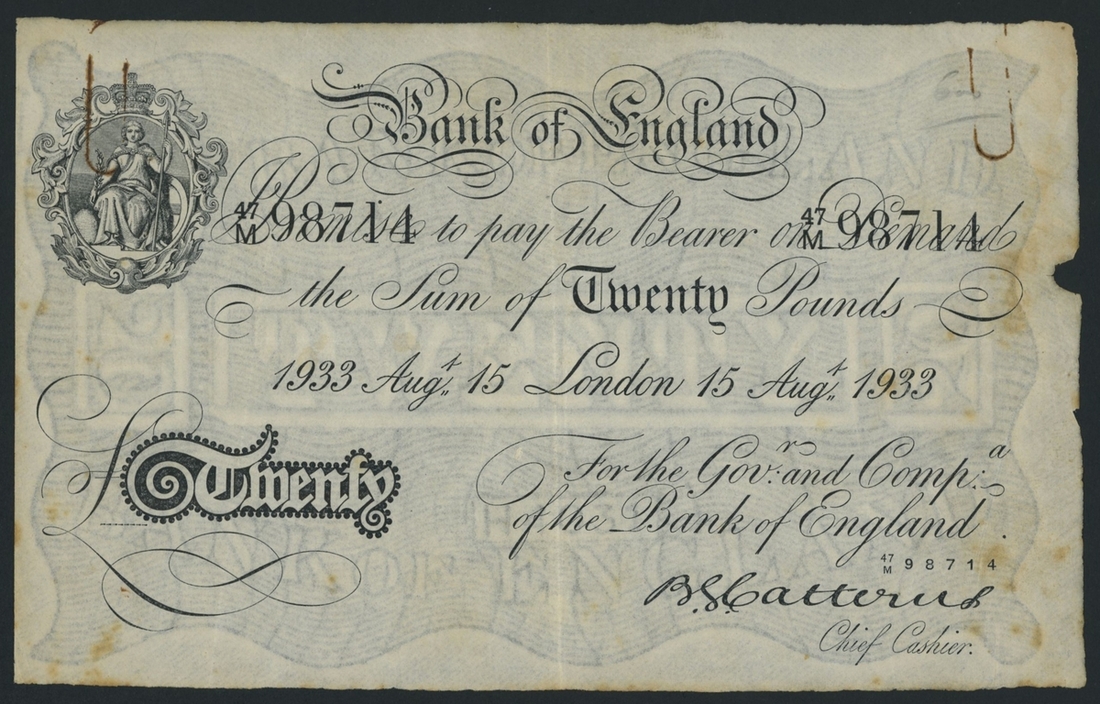 Bank of England
I Promise to pay the Bearer on Demand
47/M 98714 47/M 98714
the Sum of Twenty Pounds
1933 Augt. 15 London 15 Augt. 1933
£Twenty
For the Govr. and Compa.
of the Bank of England.
47/M 98714
B.G. Catterns
Chief Cashier.